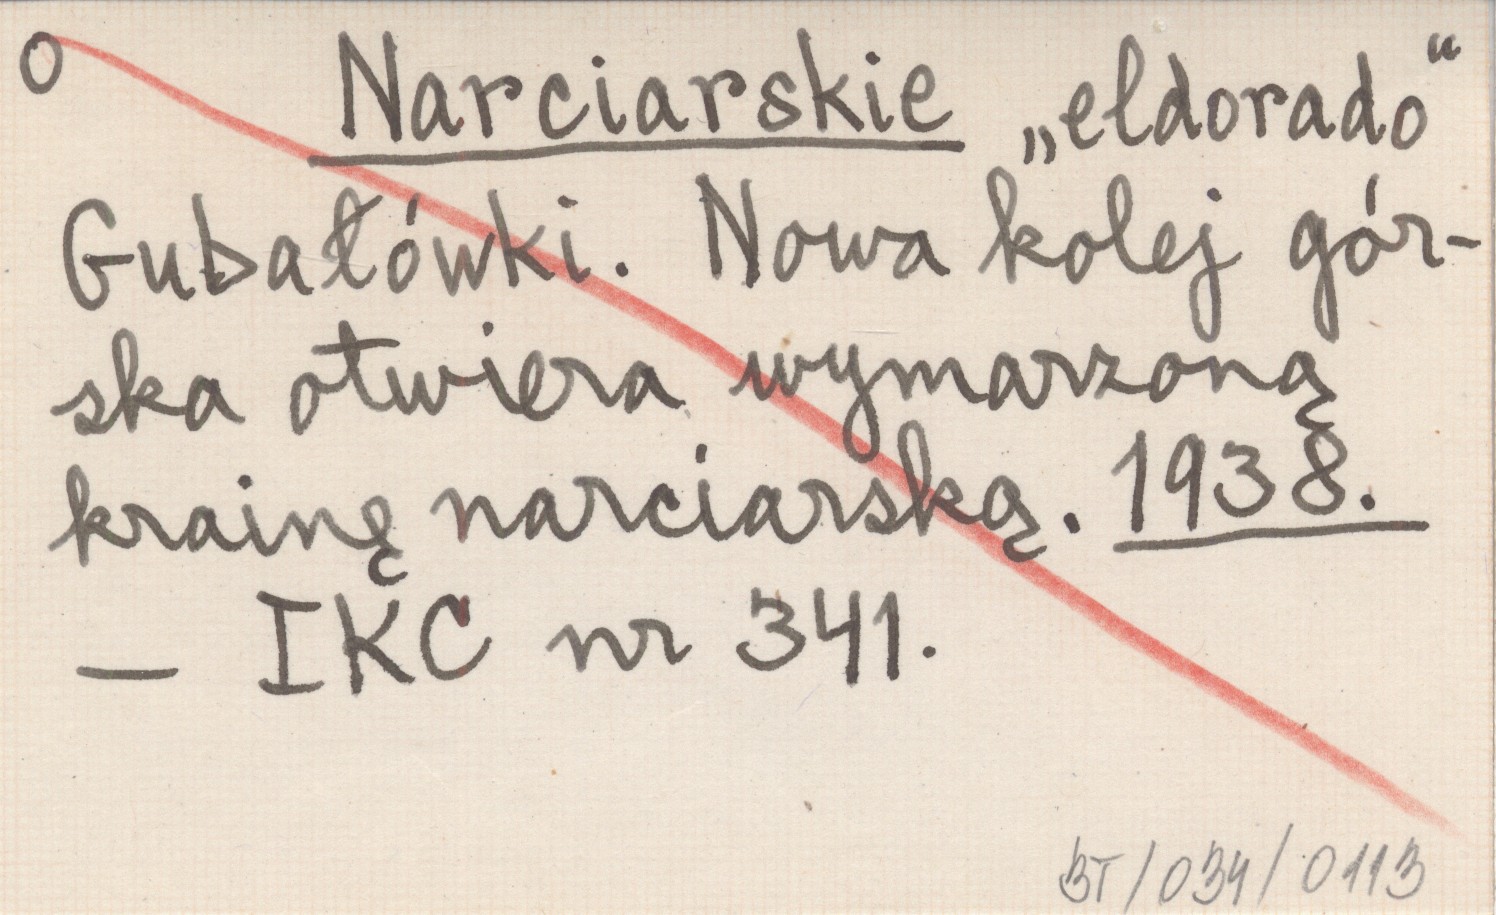 O Narciarskie „eldorado“
Gubałówki. Nowa kolej gór-
ska otwiera wymarzoną
krainę narciarską. 1938.
— IKC nr 341.
BT/034/0113